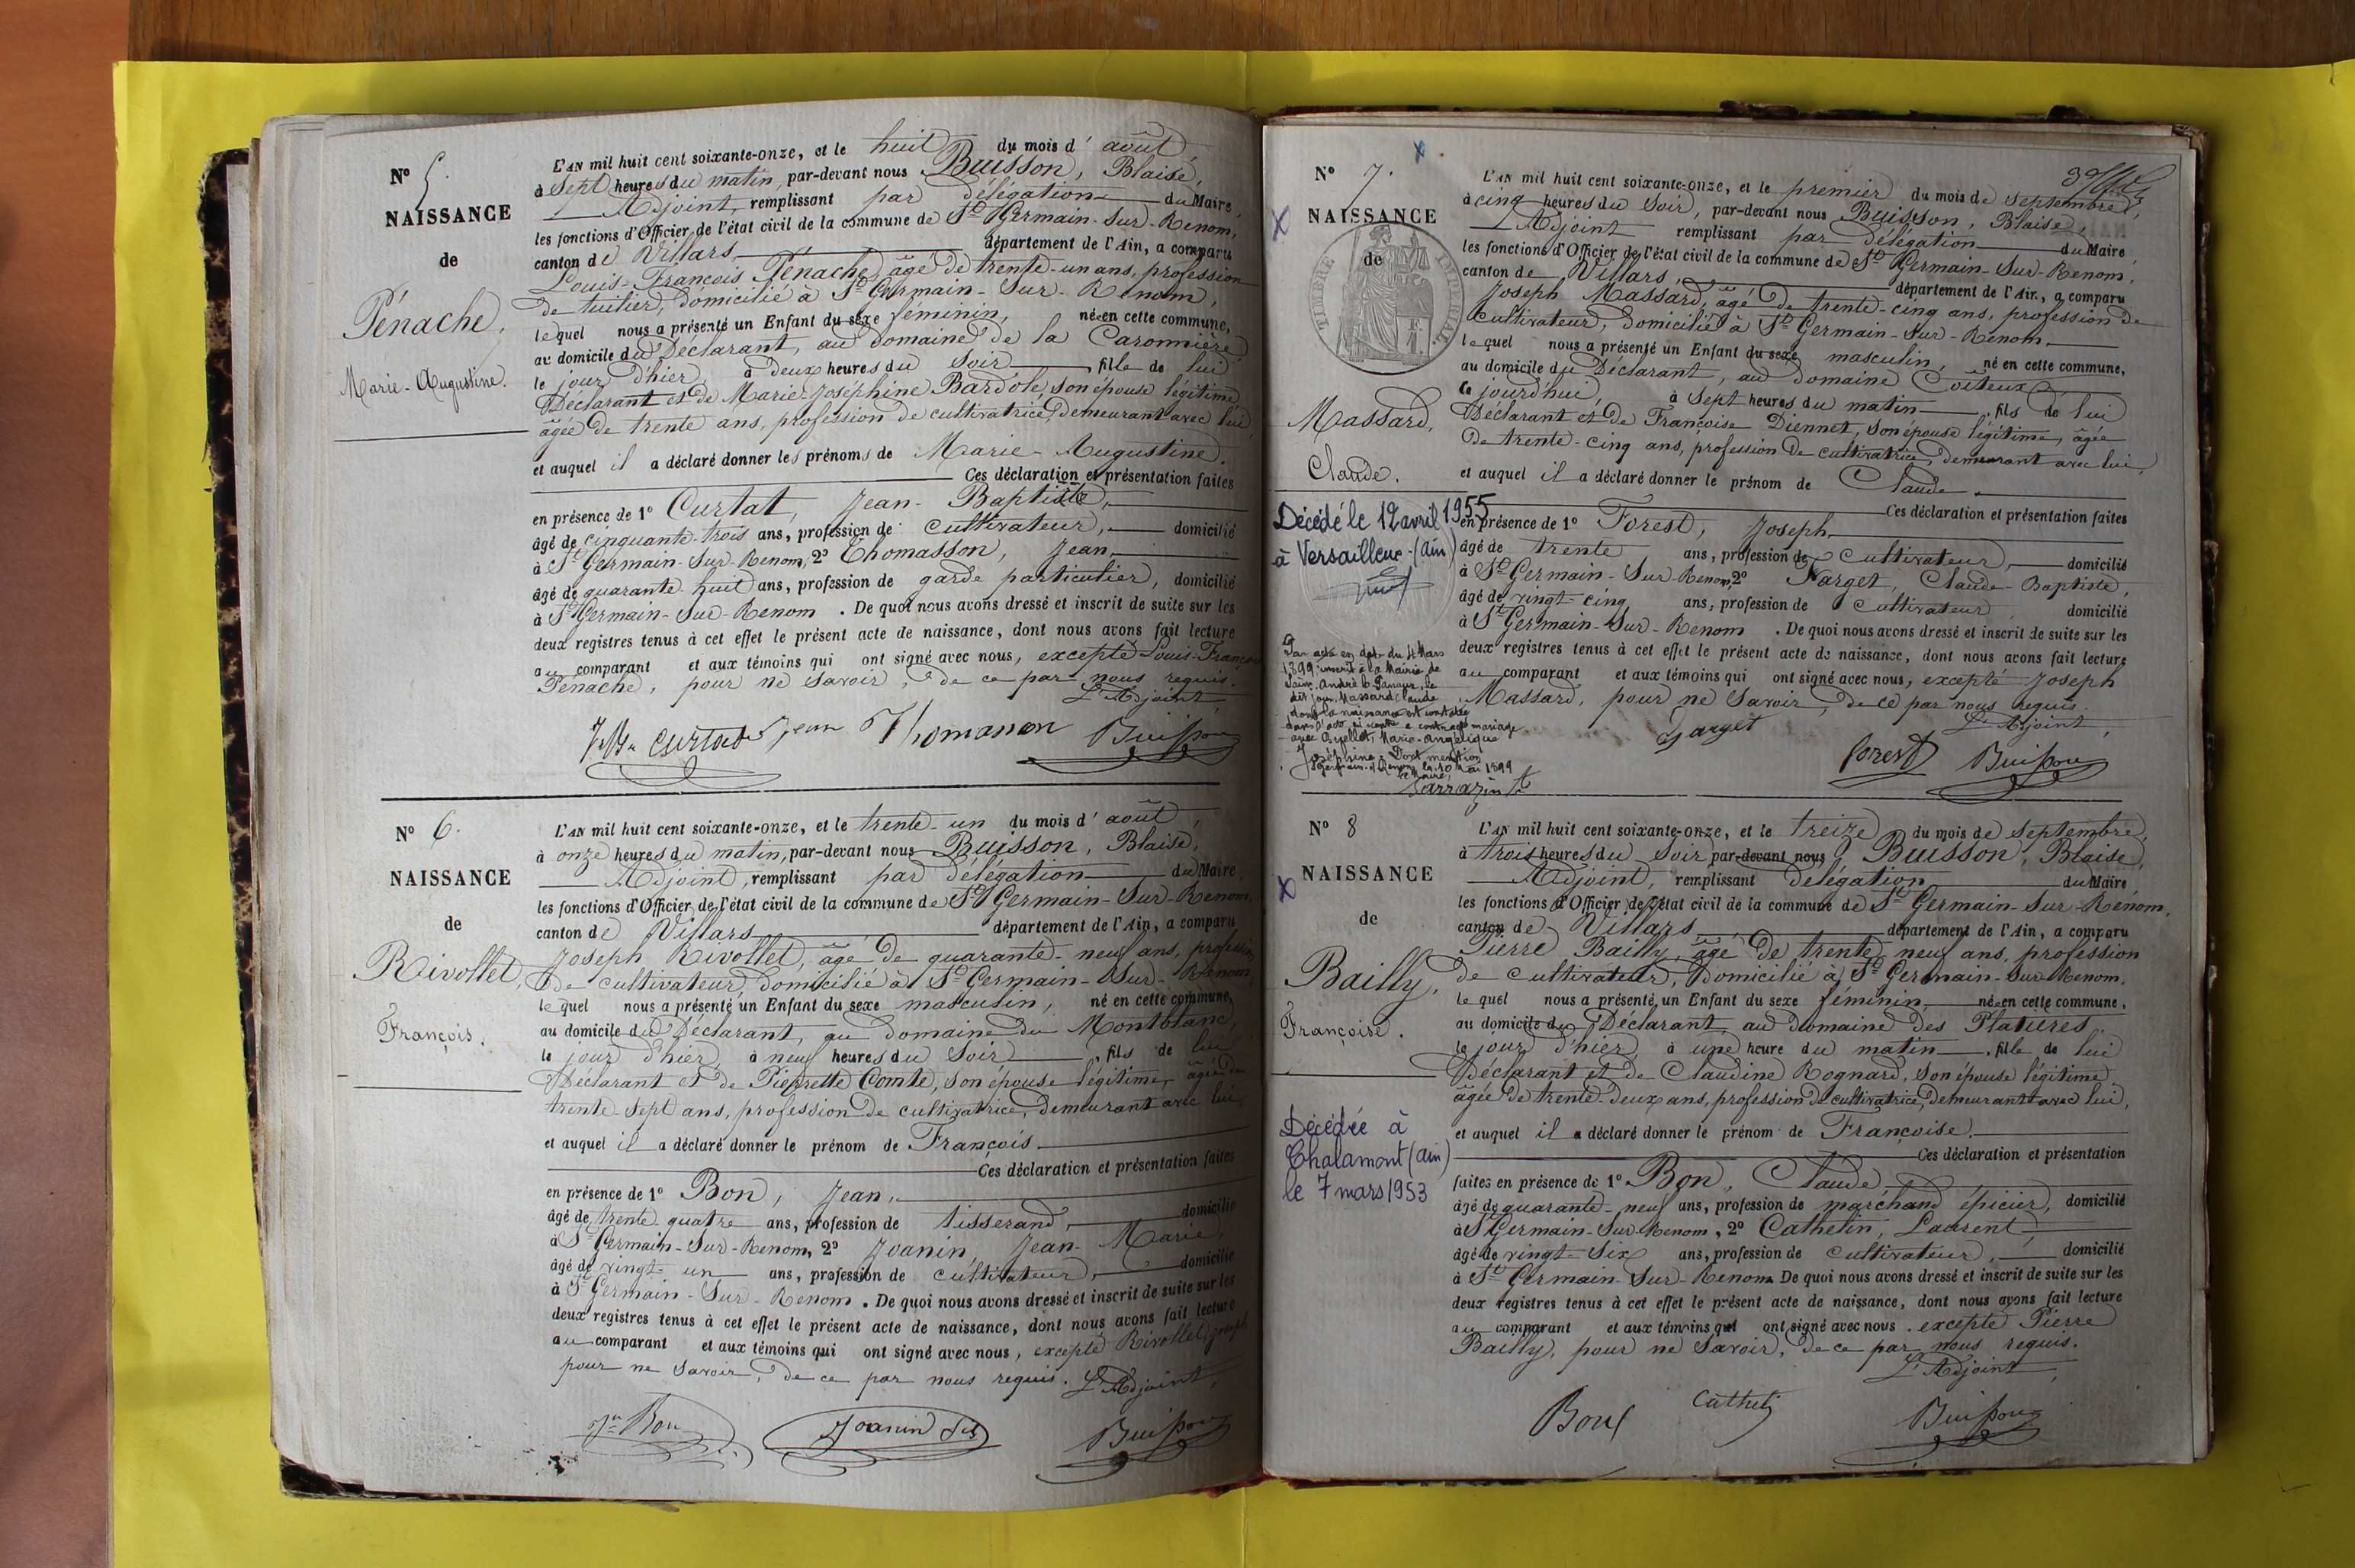 N° 5.
NAISSANCE
de
Pénache,
Marie-Augustine.
L'AN mil huit cent soixante-onze, et le huit du mois d'août,
à sept heures du matin, par-devant nous Buisson, Blaise,
Adjoint, remplissant par délégation du Maire,
les fonctions d'Officier de l'état civil de la commune de St Germain-Sur-Renom,
canton de Villars, département de l'Ain, a comparu
Louis-François Pénache, âgé de trente-un ans, profession
de tuilier, domicilié à St Germain-Sur-Renom,
lequel nous a présenté un Enfant du sexe féminin, née en cette commune,
au domicile du Déclarant, au domaine de la Caronnière
le jour d'hier, à deux heures du soir fille de lui
Déclarant et de Marie-Joséphine Bardole, son épouse légitime
âgée de trente ans, profession de cultivatrice, demeurant avec lui
et auquel il a déclaré donner les prénoms de Marie-Augustine.
Ces déclaration et présentation faites
en présence de 1° Curtat, Jean-Baptiste,
âgé de cinquante-trois ans, profession de cultivateur, domicilié
à St Germain-Sur-Renom, 2° Thomasson, Jean,
âgé de quarante-huit ans, profession de garde particulier, domicilié
à St Germain-Sur-Renom. De quoi nous avons dressé et inscrit de suite sur les
deux registres tenus à cet effet le présent acte de naissance, dont nous avons fait lecture
au comparant et aux témoins qui ont signé avec nous, excepté Louis-François
Pénache, pour ne savoir, de ce par nous requis.
L'Adjoint,
Curtat Jean Thomasson Buisson
N° 6.
NAISSANCE
de
Rivollet,
François.
L'AN mil huit cent soixante-onze, et le trente-un du mois d'août,
à onze heures du matin, par-devant nous Buisson, Blaise,
Adjoint, remplissant par délégation du Maire,
les fonctions d'Officier de l'état civil de la commune de St Germain-Sur-Renom,
canton de Villars département de l'Ain, a comparu
Joseph Rivollet, âgé de quarante-neuf ans, profession
de cultivateur, domicilié à St Germain-Sur-Renom,
lequel nous a présenté un Enfant du sexe masculin, né en cette commune,
au domicile du Déclarant, au domaine du Montblanc,
le jour d'hier, à neuf heures du soir, fils de lui
Déclarant et de Pierrette Comte, son épouse légitime, âgée de
trente-sept ans, profession de cultivatrice, demeurant avec lui,
et auquel il a déclaré donner le prénom de François.
Ces déclaration et présentation faites
en présence de 1° Bon, Jean,
âgé de trente-quatre ans, profession de tisserand, domicilié
à St Germain-Sur-Renom, 2° Joanin, Jean-Marie,
âgé de vingt-un ans, profession de cultivateur, domicilié
à St Germain-Sur-Renom. De quoi nous avons dressé et inscrit de suite sur les
deux registres tenus à cet effet le présent acte de naissance, dont nous avons fait lecture
au comparant et aux témoins qui ont signé avec nous, excepté Rivollet Joseph
pour ne savoir, de ce par nous requis. L'Adjoint,
Jn Bon Joanin fils Buisson
N° 7.
NAISSANCE
de
TIMBRE IMPÉRIAL
Massard,
Claude.
Décédé le 12 avril 1955
à Versailleux (Ain)
Par acte en date du 4 Mars
1899 inscrit à la Mairie de
Saint André le Panoux, le
dit jour Massard Claude
dont la naissance est constatée
dans l'acte ci-contre a contracté mariage
avec Marie-Angélique
Joséphine. Dont mention
St Germain s/ Renom le 10 Mai 1899
Le Maire,
Sarrazin
L'AN mil huit cent soixante-onze, et le premier du mois de septembre,
à cinq heures du soir, par-devant nous Buisson, Blaise,
Adjoint remplissant par délégation du Maire,
les fonctions d'Officier de l'état civil de la commune de St Germain-Sur-Renom,
canton de Villars, département de l'Ain, a comparu
Joseph Massard, âgé de trente-cinq ans, profession de
cultivateur, domicilié à St Germain-Sur-Renom,
lequel nous a présenté un Enfant du sexe masculin, né en cette commune,
au domicile du Déclarant, au domaine Coiteux
ce jourd'hui, à sept heures du matin, fils de lui
Déclarant et de Françoise Diennet, son épouse légitime, âgée
de trente-cinq ans, profession de cultivatrice, demeurant avec lui,
et auquel il a déclaré donner le prénom de Claude.
Ces déclaration et présentation faites
en présence de 1° Forest, Joseph,
âgé de trente ans, profession de cultivateur, domicilié
à St Germain-Sur-Renom, 2° Garget, Claude-Baptiste,
âgé de vingt-cinq ans, profession de cultivateur domicilié
à St Germain-Sur-Renom. De quoi nous avons dressé et inscrit de suite sur les
deux registres tenus à cet effet le présent acte de naissance, dont nous avons fait lecture
au comparant et aux témoins qui ont signé avec nous, excepté Joseph
Massard, pour ne savoir, de ce par nous requis.
L'Adjoint,
Garget
Forest Buisson
N° 8
NAISSANCE
de
Bailly,
Françoise.
Décédée à
Chalamont (Ain)
le 7 mars 1953
L'AN mil huit cent soixante-onze, et le treize du mois de septembre,
à trois heures du soir par-devant nous, Buisson, Blaise,
Adjoint, remplissant délégation du Maire,
les fonctions d'Officier de l'état civil de la commune de St Germain-Sur-Renom,
canton de Villars, département de l'Ain, a comparu
Pierre Bailly, âgé de trente-neuf ans, profession
de cultivateur, domicilié à St Germain-Sur-Renom,
lequel nous a présenté un Enfant du sexe féminin, née en cette commune,
au domicile du Déclarant, au domaine des Platières,
le jour d'hier, à une heure du matin, fille de lui
Déclarant et de Claudine Rognard, son épouse légitime
âgée de trente-deux ans, profession de cultivatrice, demeurant avec lui,
et auquel il a déclaré donner le prénom de Françoise.
Ces déclaration et présentation
faites en présence de 1° Bon, Claude,
âgé de quarante-neuf ans, profession de marchand épicier, domicilié
à St Germain-Sur-Renom, 2° Cathelin, Laurent,
âgé de vingt-six ans, profession de cultivateur, domicilié
à St Germain-Sur-Renom De quoi nous avons dressé et inscrit de suite sur les
deux registres tenus à cet effet le présent acte de naissance, dont nous avons fait lecture
au comparant et aux témoins qui ont signé avec nous, excepté Pierre
Bailly, pour ne savoir, de ce par nous requis.
L'Adjoint,
Bon Cathelin Buisson